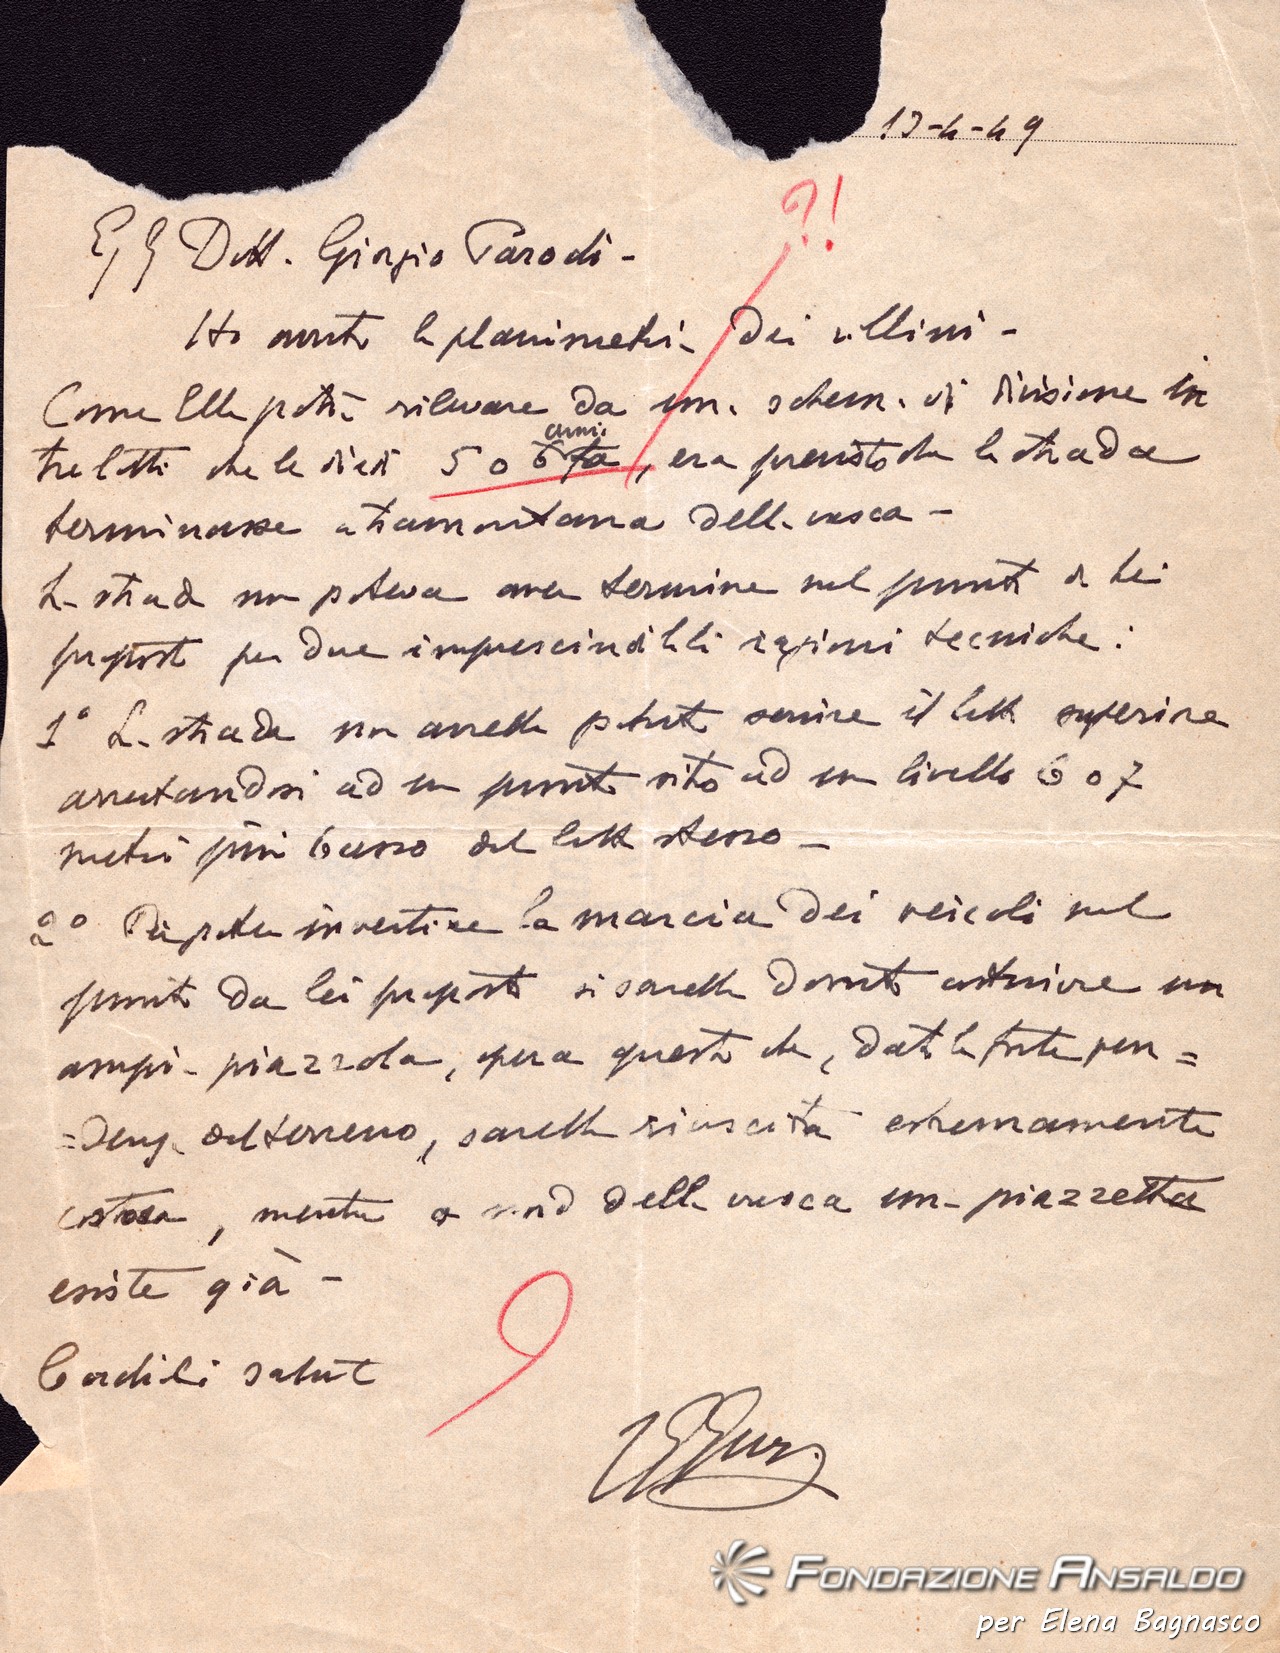 13-4-49
?!
Eg. Dott. Giorgio Parodi -
Ho avuto la planimetria dei villini -
Come Ella potrà rilevare da una schema di divisione in
anni
tre lotti che le diedi 5 o 6 fa, era previsto che la strada
terminasse a tramontana della vasca -
La strada non poteva aver termine nel punto da Lei
proposto per due imprescindibili ragioni tecniche:
1° La strada non avrebbe potuto servire il lotto superiore
arrestandosi ad un punto sito ad un livello 6 o 7
metri più basso del lotto stesso -
2° Per poter invertire la marcia dei veicoli nel
punto da lei proposto si sarebbe dovuto costruire un
ampia piazzola, opera questa che, data la forte pen=
=denza del terreno, sarebbe riuscita estremamente
costosa, mentre a nord della vasca una piazzetta
esiste già -
Cordiali saluti
FONDAZIONE ANSALDO
per Elena Bagnasco